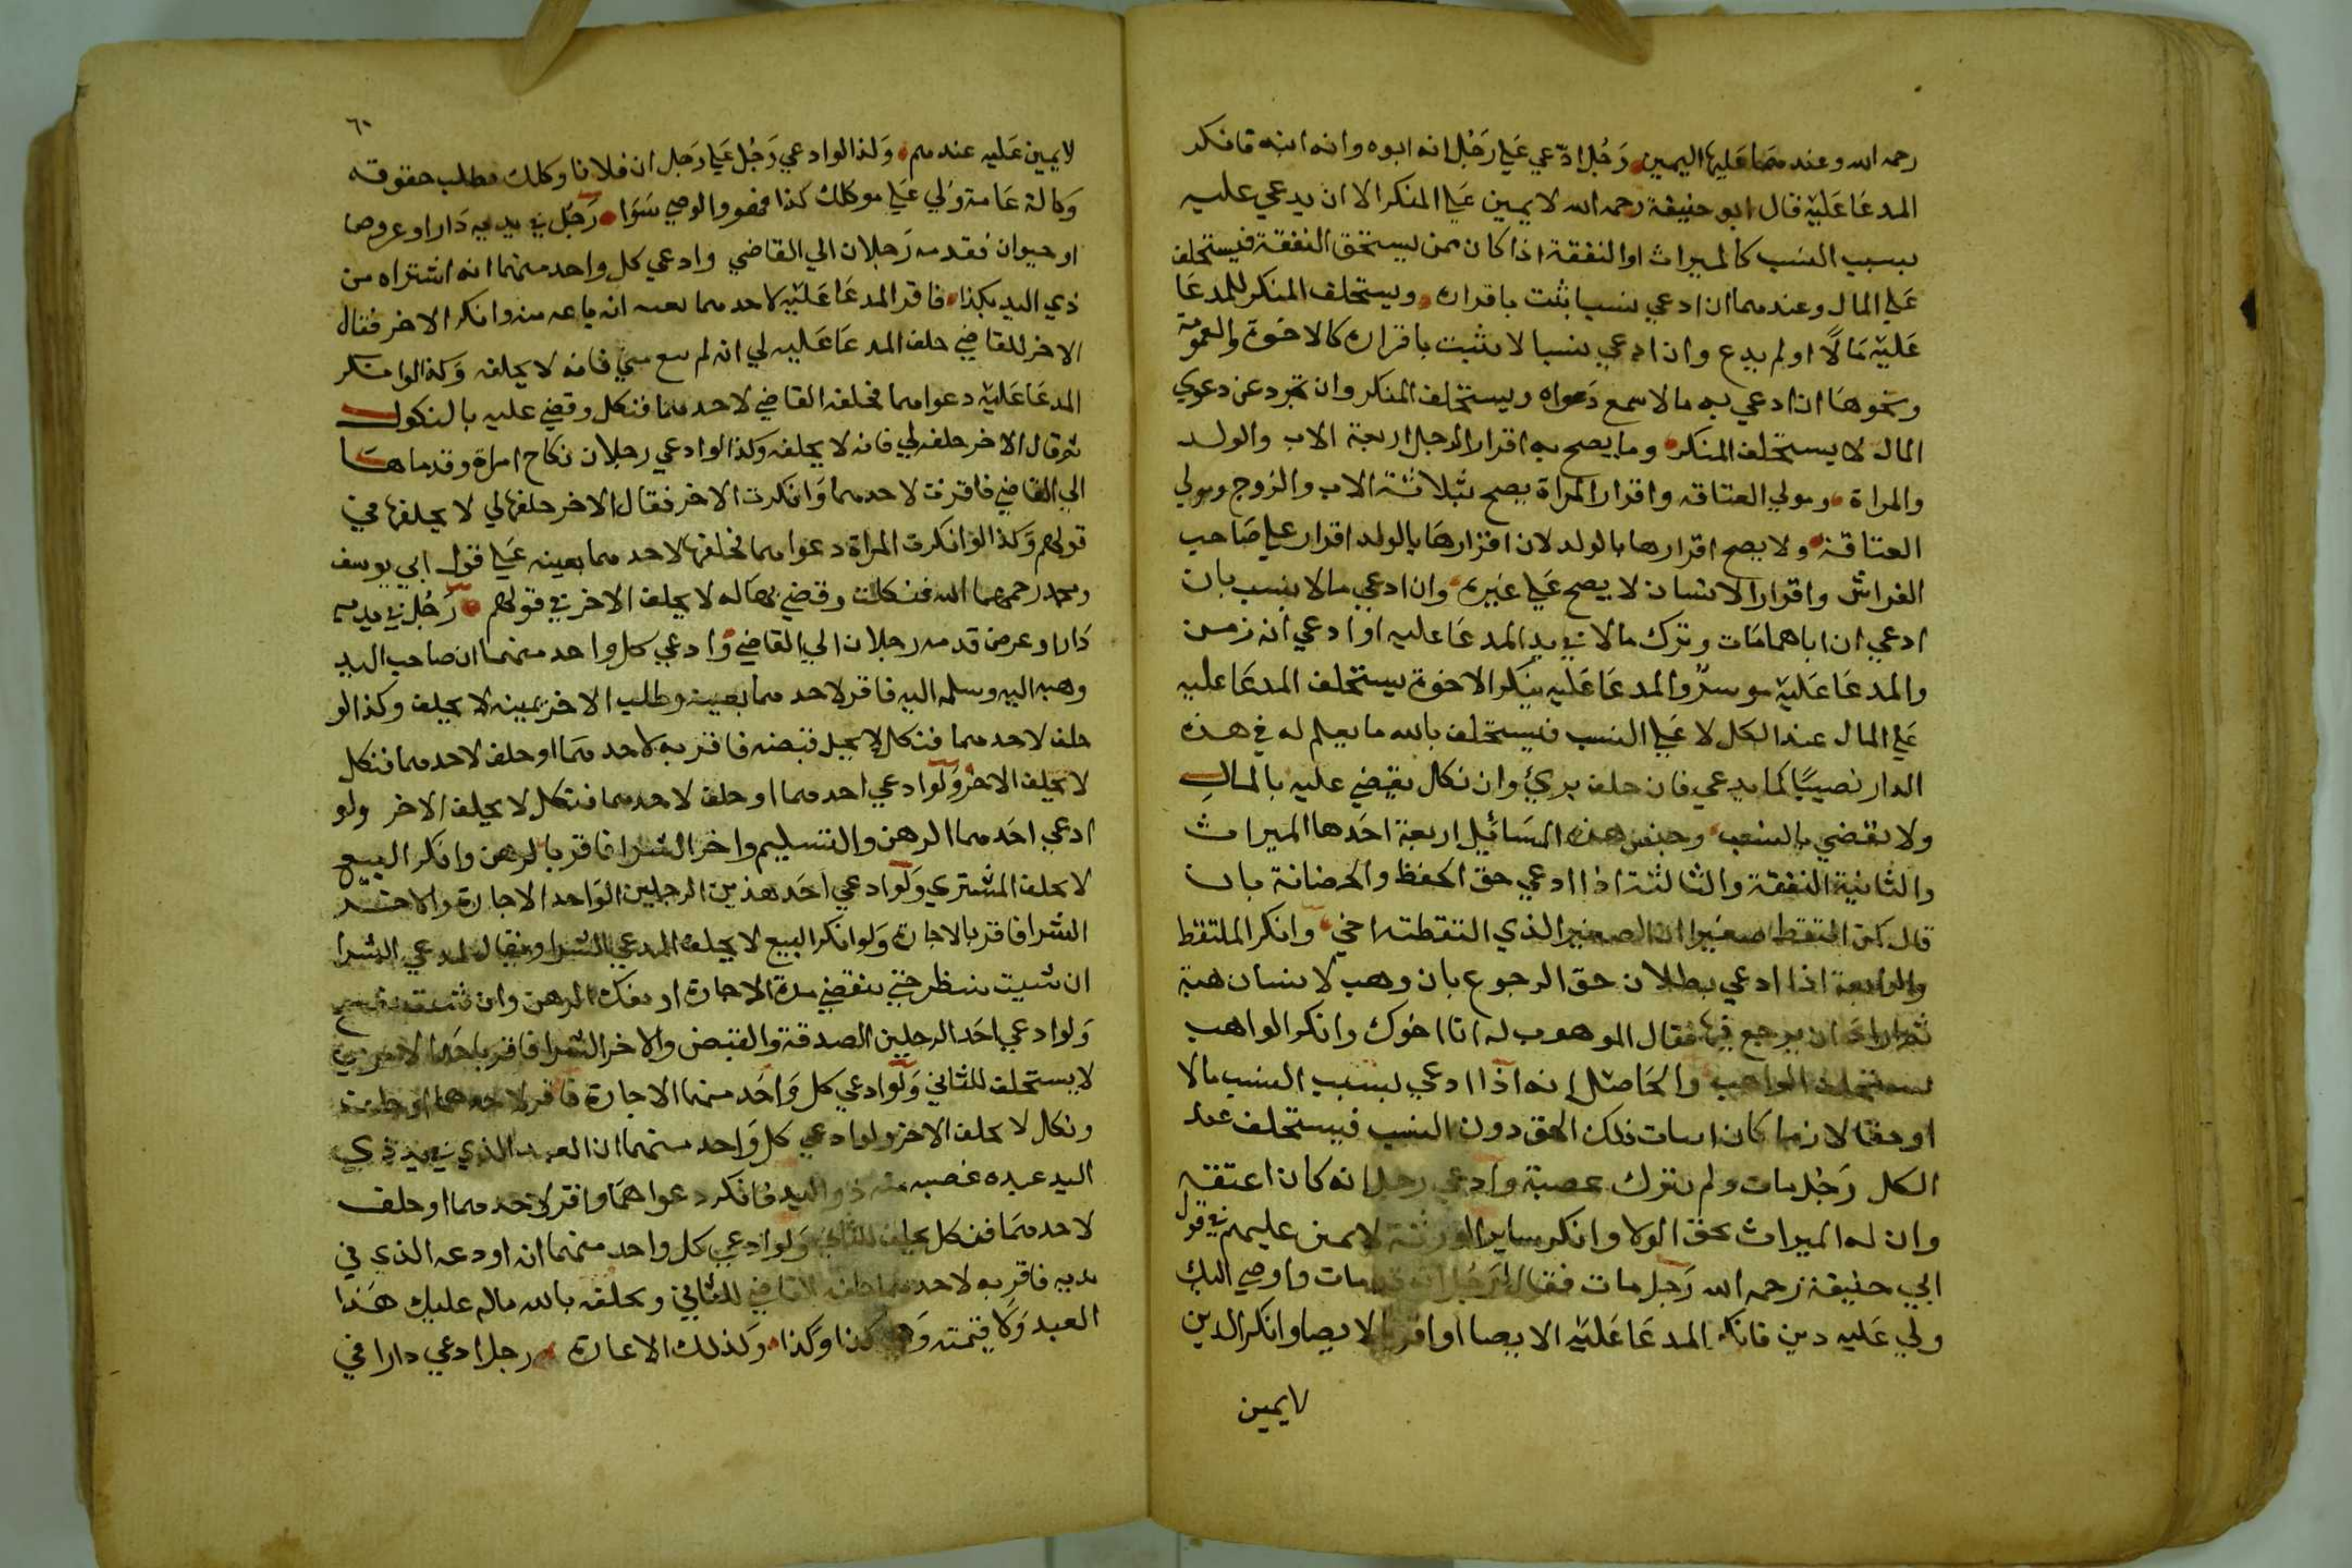 رحمه الله وعندهما عليها اليمين رَجُل ادّعي عَلي رَجُل انه ابوه وانه ابنه فانكر
المدعَا عَليْه قال ابو حنيفة رحمه الله لا يمين عَلي المنكر الا ان يدعي عليه
بسبب النسب كالميراث او النفقة اذا كان ممن يستحق النفقة فيستحلف
عَلي المال وعندهما ان ادعي نسبا يثبت باقراره ويستحلف المنكر للمدعَا
عَليْه مَالاً او لم يدع وان ادعي نسبا لا يثبت باقراره كالاخوة والعمومة
ونحوهَا ان ادعي به مالا سمع دَعواه ويستحلف المنكر وان تجرد عن دعوي
المال لا يستحلف المنكر وما يصح به اقرار الرجل اربعة الاب والولد
والمراة ومولي العتاقه واقرار المراة يصح بثلاثة الاب والزوج ومولي
العتاقة ولا يصح اقرارها بالولد لان اقرارهَا بالولد اقرار علي صَاحب
الفراش واقرار الانسان لا يصح عَلي غيره وان ادعي مالا بنسب بان
ادعي ان اباهما مَات وترك مالا في يد المدعَا عليه او ادعي انه زمن
والمدعَا عَليْه موسر والمدعَا عَليه ينكر الاخوة يستحلف المدعَا عليه
عَلي المال عند الكل لا عَلي النسب فيستحلف بالله ما يعلم له في هذه
الدار نصيبًا كما يدعي فان حلف برئ وان نكل يقضي عليه بالمال
ولا يقضي بالنسب وجنس هذه المسَائيل اربعة احَدها الميراث
والثانية النفقة والثالثة اذا ادعي حق الحفظ والحضانة بان
قال لمن التقط صغيرا ان الصغير الذي التقطته اخي وانكر الملتقط
والرابعة اذا ادعي بطلان حق الرجوع بان وهب لانسان هبة
ثم اراد ان يرجع فيها فقال الموهوب له انا اخوك وانكر الواهب
يستحلف الواهب والحَاصل انه اذا ادعي بسبب النسب مالا
او حقا لازما كان اثبات ذلك الحق دون النسب فيستحلف عند
الكل رَجُل مات ولم يترك عصبة وادعي رجل انه كان اعتقه
وان له الميراث بحق الولا وانكر ساير الورثة لا يمين عليهم في قول
ابي حنيفة رحمه الله رَجل مات فقال لرجُل انه قد مات واوصي اليك
ولي عَليه دين فانكر المدعَا عَليْه الايصا او اقر بالايصا وانكر الدين
لا يمين
٦٠
لا يمين عَليه عندهم وَكذا لو ادعي رَجُل عَلي رَجل ان فلانا وكلك بطلب حقوقه
وَكالة عَامة وَلي عَلي موكلك كذا فهو والوصي سَوَا رَجُل في يديه دَار او عروض
او حيوان فقدمه رَجلان الي القاضي وادعي كل واحد منهما انه اشتراه من
ذي اليد بكذا فاقر المدعَا عَليْه لاحدهما بعينه انه باعه منه وانكر الاخر فقال
الاخر للقاضي حلف المدعَا عَليه لي انه لم يبع مني فانه لا يحلف وَكذا لو انكر
المدعَا عَليْه دعواهما فحلفه القاضي لاحدهما فنكل وقضي عليه بالنكول
ثم قال الاخر حلفه لي فانه لا يحلفه وكذا لو ادعي رجلان نكاح امراة وقدماهَا
الي القاضي فاقرت لاحدهما وَانكرت الاخر فقال الاخر حلفها لي لا يحلفها في
قولهم وَكذا لو انكرت المراة دعواهما فحلفها لاحدهما بعينه عَلي قول ابي يوسف
ومحمد رحمهما الله فنكلت وقضي بهَا له لا يحلف الاخر في قولهم رَجُل في يديه
دَار او عرض قدمه رجلان الي القاضي وَادعي كل واحد منهما ان صاحب اليد
وهبه اليه وسلمه اليه فاقر لاحدهما بعينه وطلب الاخر يمينه لا يحلف وكذا لو
حلف لاحدهما فنكل قبضه فاقر به لاحدهمَا او حلف لاحدهما فنكل
لا يحلف الاخر وَلو ادعي احدهما او حلف لاحدهما فنكل لا يحلف الاخر ولو
ادعي احَدهما الرهن والتسليم واخر الشرا فاقر بالرهن وانكر البيع
لا يحلف المشتري وَلو ادعي اَحَد هذين الرجلين الوَاحد الاجارة والاخر
الشرا فاقر بالاجارة وَلو انكر البيع لا يحلف المدعي الشرا ويقال لمدعي الشرا
ان شيت ننظر حتي تنقضي مدة الاجارة او يفك الرهن وان شيت
وَلو ادعي احَد الرجلين الصدقة والقبض والاخر الشرا فاقر
لا يستحلف للثاني وَلو ادعي كل وَاحَد منهما الاجارة فاقر لاحدهما او حلف
ونكل لا يحلف الاخر ولو ادعي كل وَاحد منهما ان العبد الذي في يد ذي
اليد عبده غصبه منه ذو اليد فانكر دعواهمَا واقر لاحدهما او حلف
لاحدهمَا فنكل يحلف للثاني وَلو ادعي كل واحد منهما انه اودعه الذي في
يديه فاقر به لاحدهما حلف القاضي للثاني ويحلفه بالله ماله عليك هَذا
العبد وَلا قيمته وَهي كذا وَكذا وَكذلك الاعارة رجل ادعي دارا في